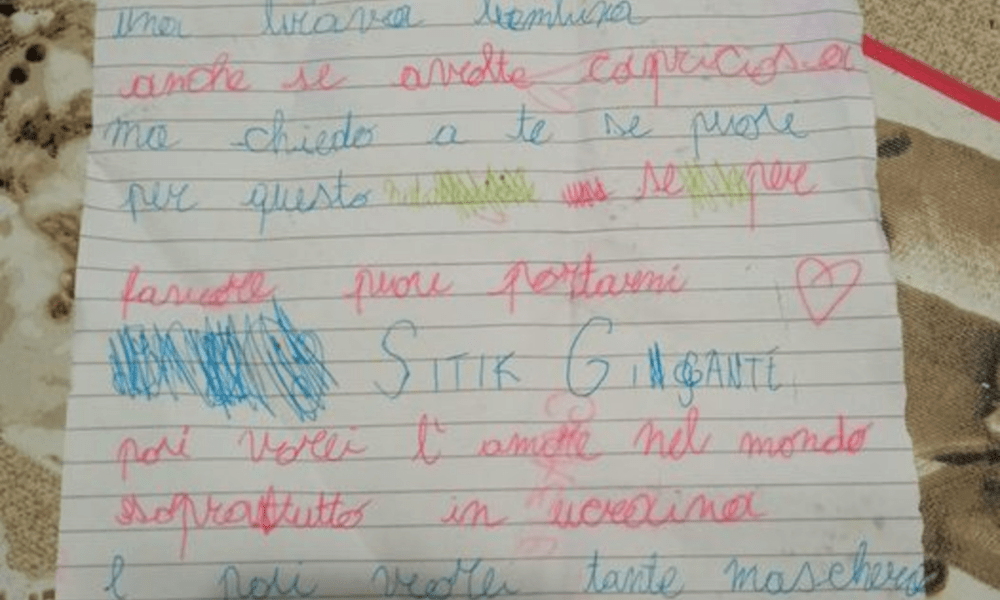 una brava bambina
anche se avolte capricciosa
ma chiedo a te se puoi
per questo se per
favore puoi portarmi
SITIK GINGANTE
poi vorrei l'amore nel mondo
soprattutto in ucraina
e poi vorrei tante maschere